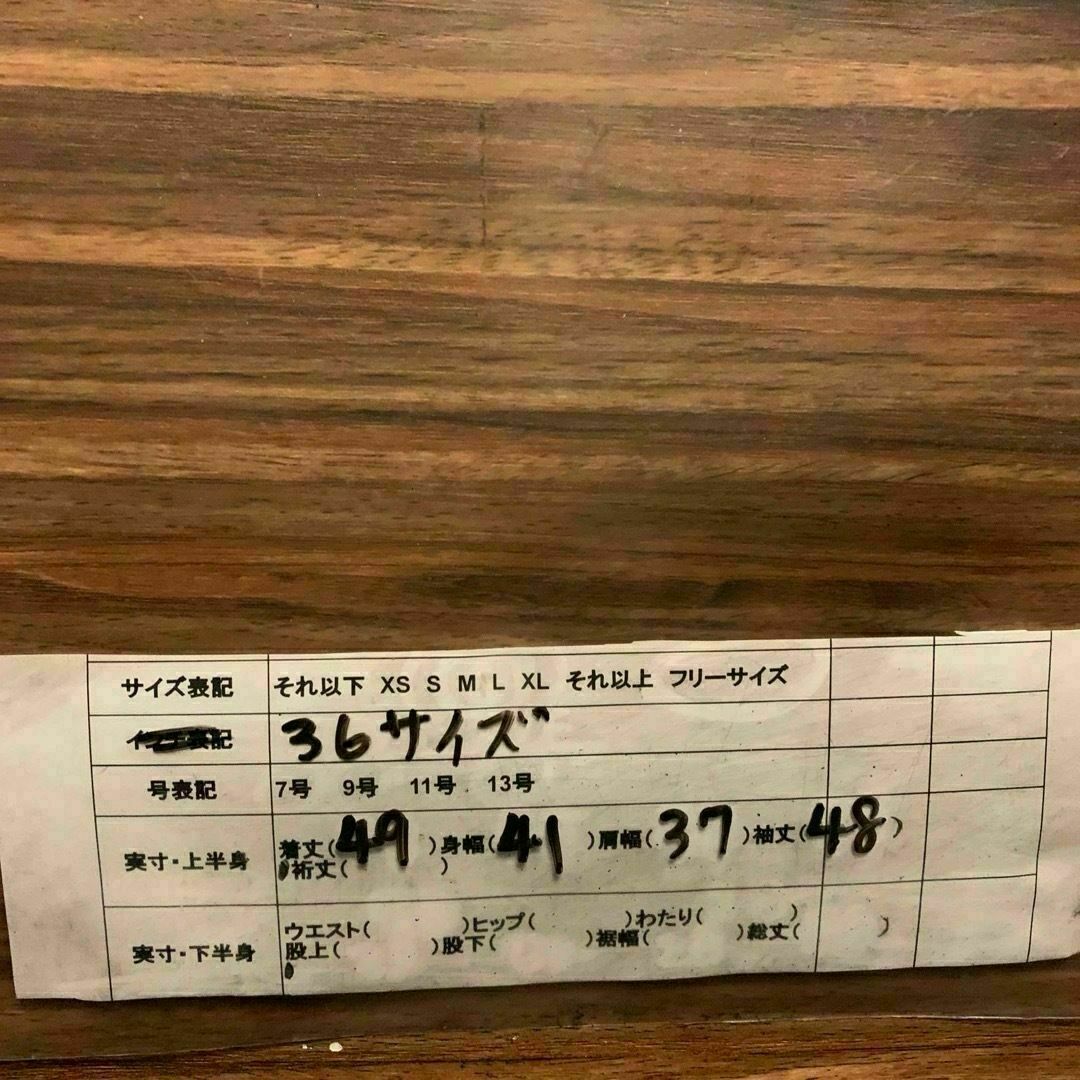 サイズ表記 それ以下 XS S M L XL それ以上 フリーサイズ
表記 36サイズ
号表記 7号 9号 11号 13号
実寸・上半身 着丈(49)身幅(41)肩幅(37)袖丈(48)
裄丈( )
実寸・下半身 ウエスト( )ヒップ( )わたり( )
股上( )股下( )裾幅( )総丈( )